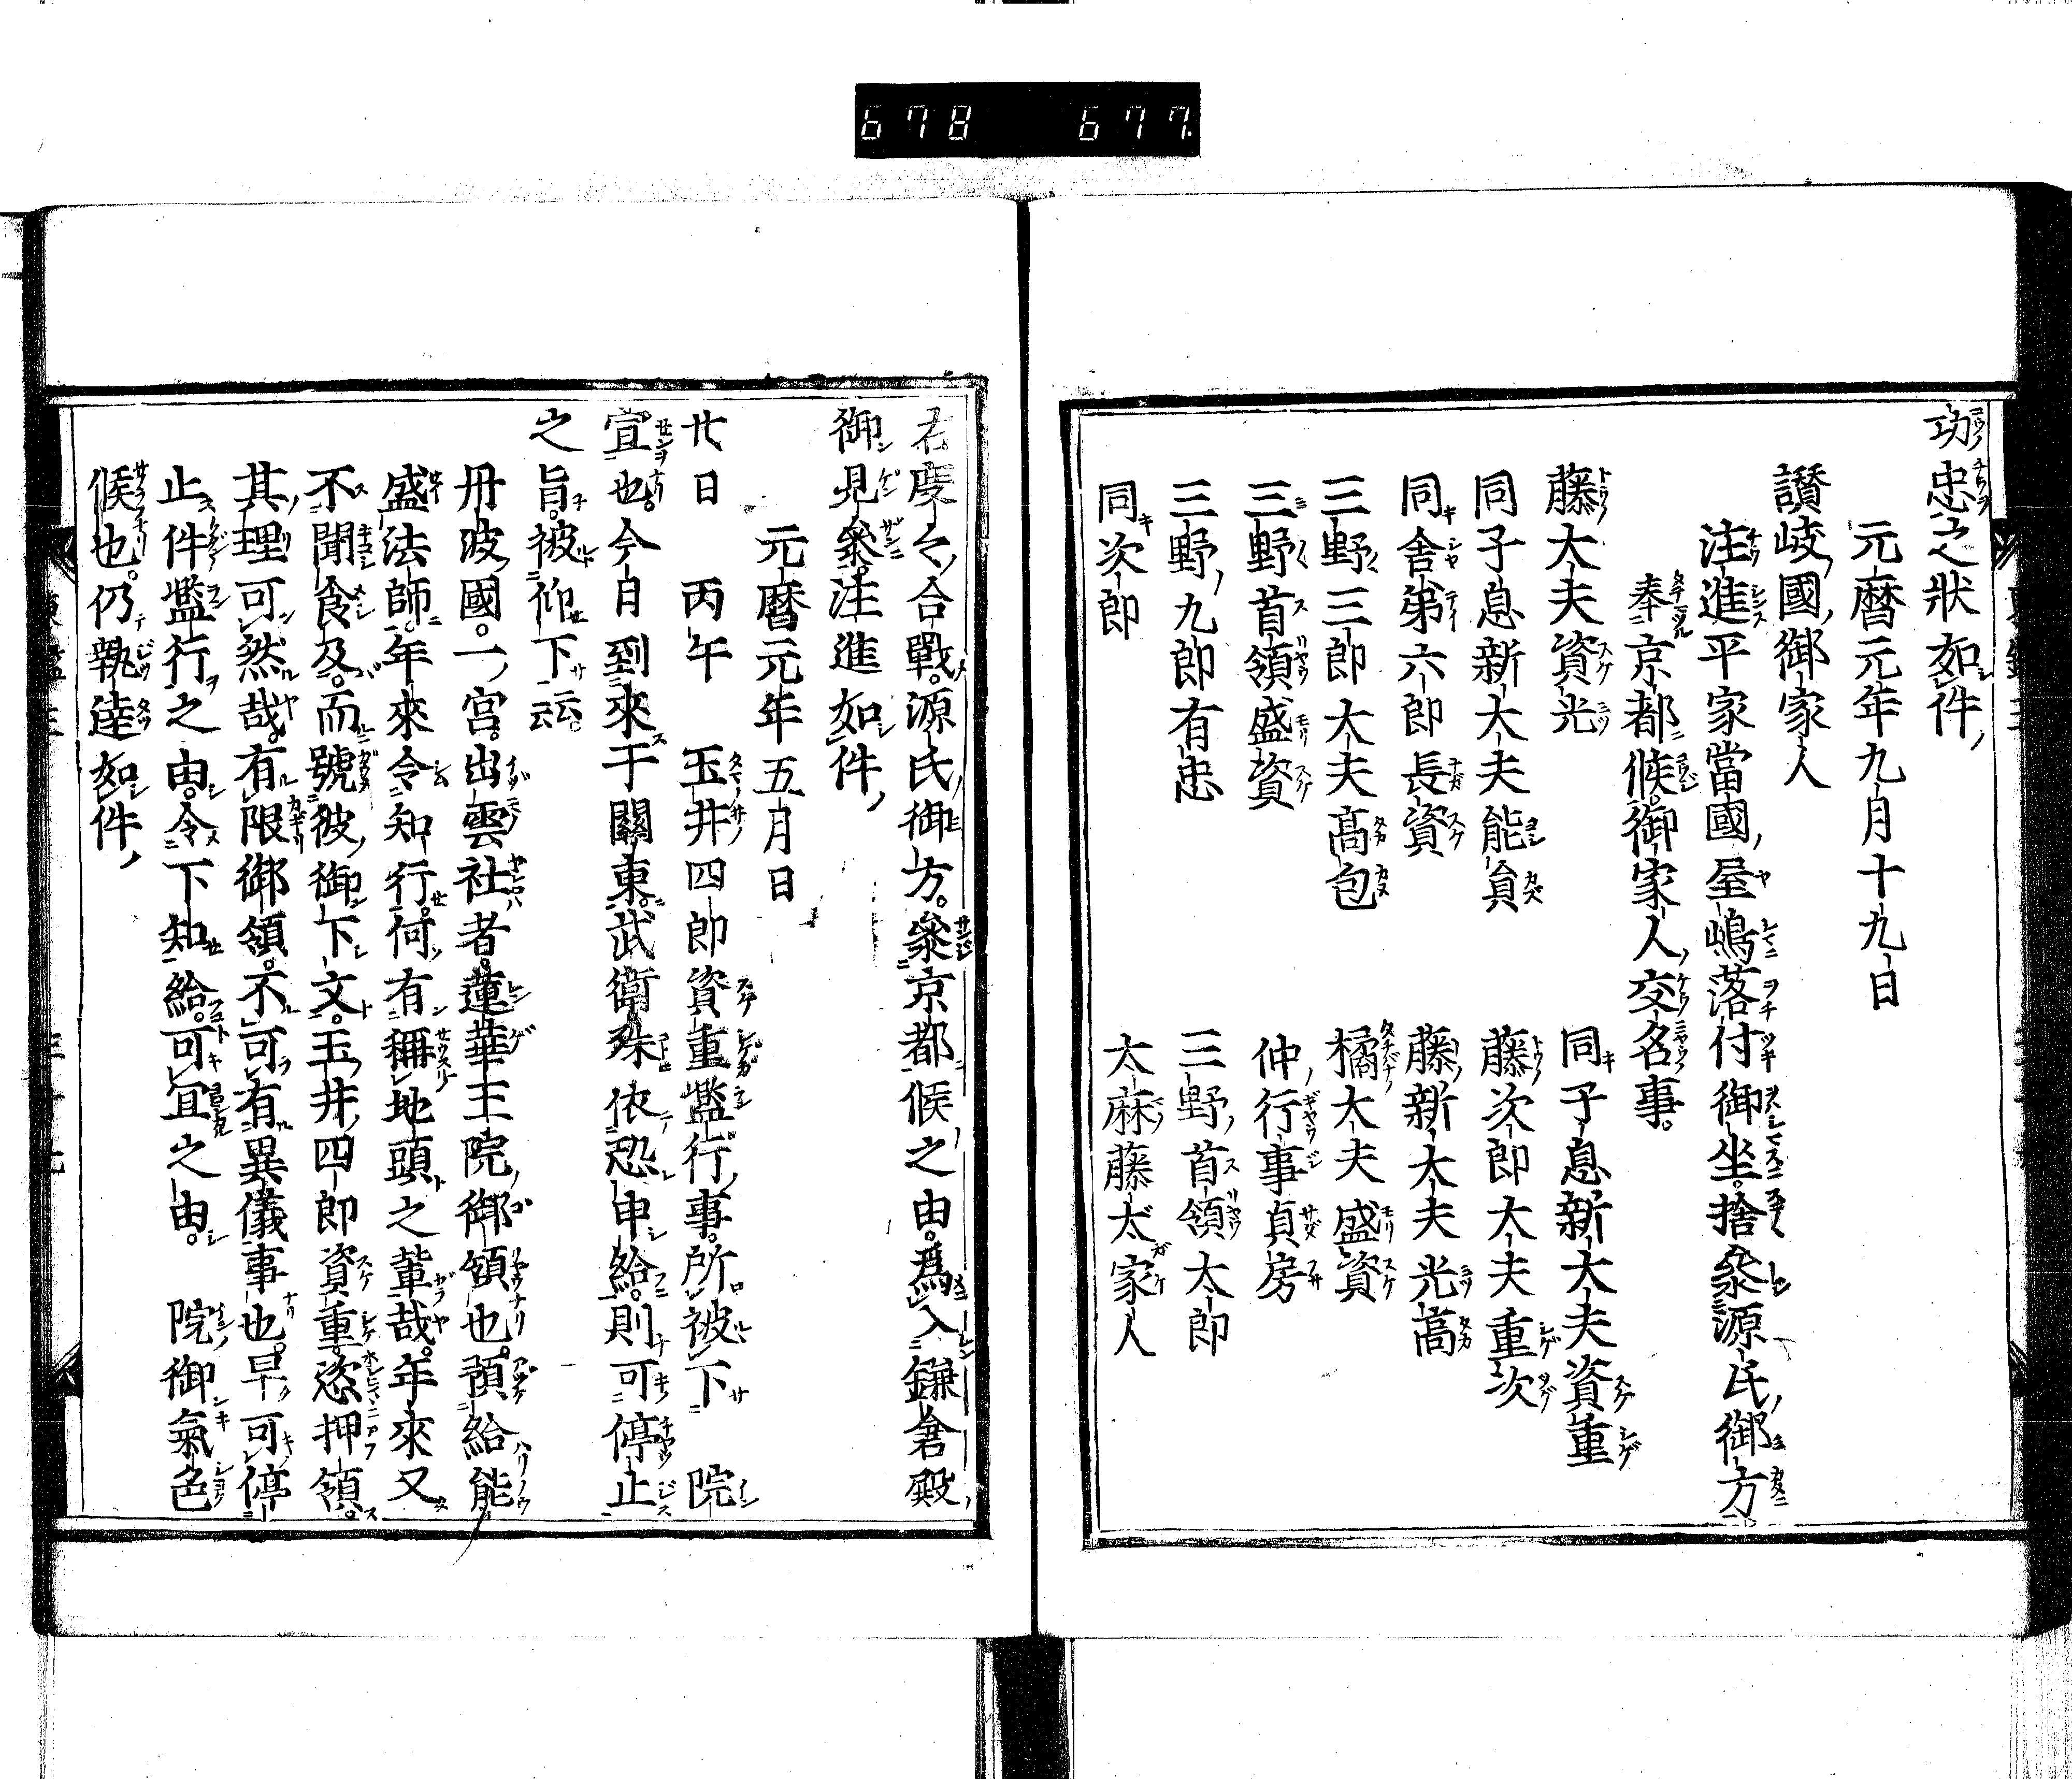 678 677
功忠之狀如件
元曆元年九月十九日
讃岐國御家人
注進平家當國屋嶋落付御坐捨參源氏御方
奉京都候御家人交名事。
藤大夫資光 同子息新大夫資重
同子息新大夫能員 藤次郎大夫重次
同舍弟六郎長資 藤新大夫光高
三野三郎大夫高包 橘大夫盛資
三野首領盛資 仲行事貞房
三野九郎有忠 三野首領太郎
同次郎 大麻藤太家人
右度々合戰。源氏御方。參京都候之由。爲入鎌倉殿
御見參。注進如件
元曆元年五月日
廿日 丙午 玉井四郎資重濫行事。所被下 院
宣也。今日到來于關東。武衛殊依恐申給。則可停止
之旨。被仰下云云。
丹波國。一宮。出雲社者。蓮華王院御領也。預給能
盛法師。年來令知行。何有稱地頭之輩哉。年來又
不聞食及。而號彼御下文。玉井四郎資重。恣押領。
其理可然哉。有限御領。不可有異儀事也。早可停
止件濫行之由。令下知給。可宜之由。 院御氣色
候也。仍執達如件